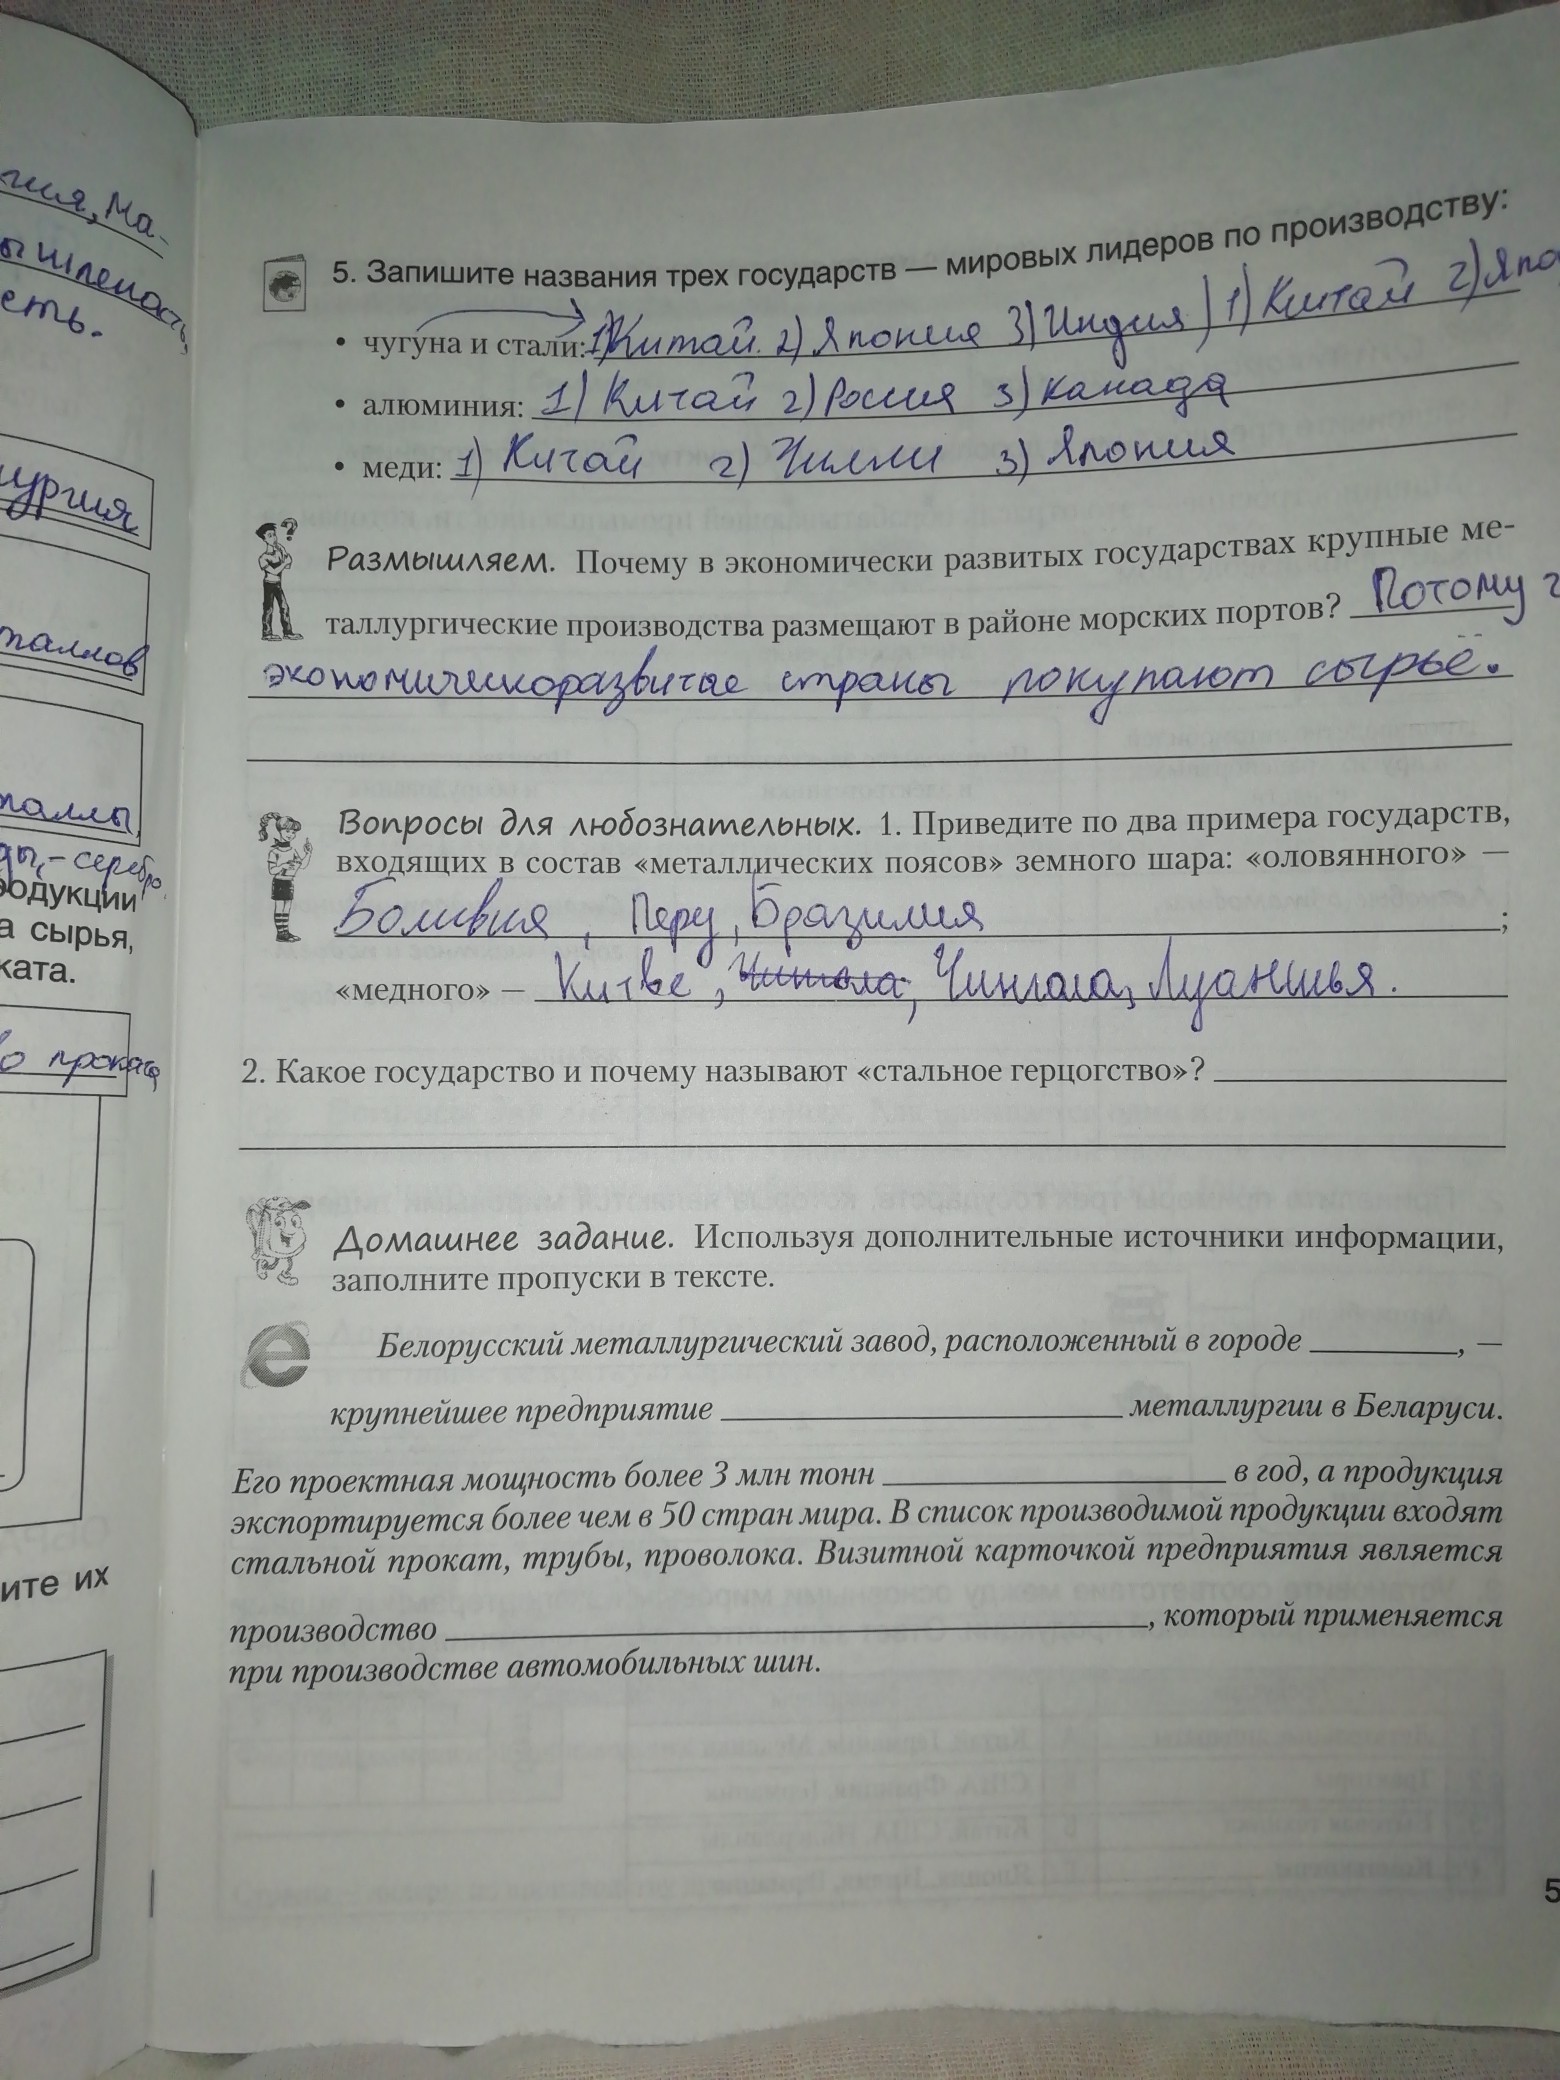 гия, Ма-
ышленность,
сть.
ургия
таллов
таллы,
ды, - серебро
родукции
а сырья,
ката.
о проката
ите их
5. Запишите названия трех государств — мировых лидеров по производству:
• чугуна и стали: 1) Китай. 2) Япония 3) Индия) 1) Китай 2) Япо
• алюминия: 1) Китай 2) Россия 3) Канада
• меди: 1) Китай 2) Чилли 3) Япония
Размышляем. Почему в экономически развитых государствах крупные ме-
таллургические производства размещают в районе морских портов? Потому ч
экономическоразвитые страны покупают сырьё.
Вопросы для любознательных. 1. Приведите по два примера государств,
входящих в состав «металлических поясов» земного шара: «оловянного» —
Боливия, Перу, Бразилия ;
«медного» — Китве, Чингола, Луаншья.
2. Какое государство и почему называют «стальное герцогство»?
Домашнее задание. Используя дополнительные источники информации,
заполните пропуски в тексте.
Белорусский металлургический завод, расположенный в городе , —
крупнейшее предприятие металлургии в Беларуси.
Его проектная мощность более 3 млн тонн в год, а продукция
экспортируется более чем в 50 стран мира. В список производимой продукции входят
стальной прокат, трубы, проволока. Визитной карточкой предприятия является
производство , который применяется
при производстве автомобильных шин.
5